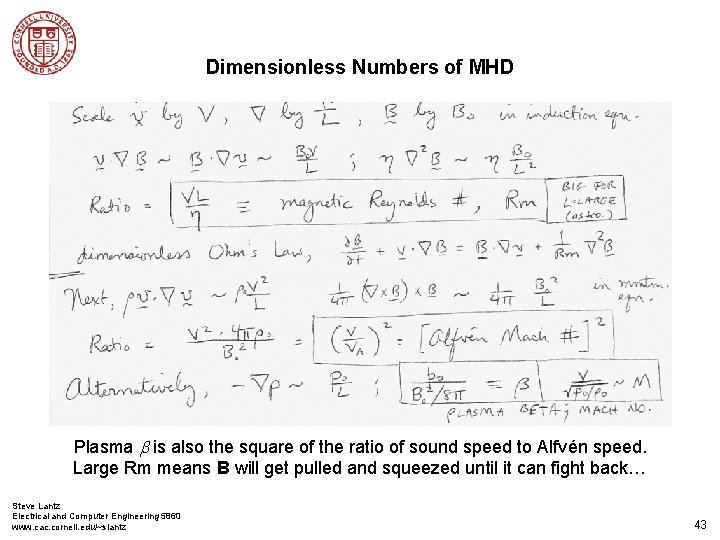 CORNELL UNIVERSITY
FOUNDED A.D. 1865
Dimensionless Numbers of MHD
Scale v by V, ∇ by 1/L, B by B₀ in induction eqn.
v·∇B ~ B·∇v ~ B₀V/L ; η∇²B ~ η B₀/L²
Ratio = VL/η ≡ magnetic Reynolds #, Rm BIG FOR L=LARGE (astro.)
dimensionless Ohm's Law, ∂B/∂t + v·∇B = B·∇v + 1/Rm ∇²B
Next, ρv·∇v ~ ρ₀V²/L 1/4π (∇×B)×B ~ 1/4π B₀²/L in momtm. eqn.
Ratio = V²·4πρ₀/B₀² = (V/V_A)² = [Alfvén Mach #]²
Alternatively, -∇p ~ p₀/L ; p₀/B₀²/8π ≡ β V/√p₀/ρ₀ ~ M
PLASMA BETA; MACH NO.
Plasma β is also the square of the ratio of sound speed to Alfvén speed.
Large Rm means B will get pulled and squeezed until it can fight back…
Steve Lantz
Electrical and Computer Engineering 5860
www.cac.cornell.edu/~slantz
43